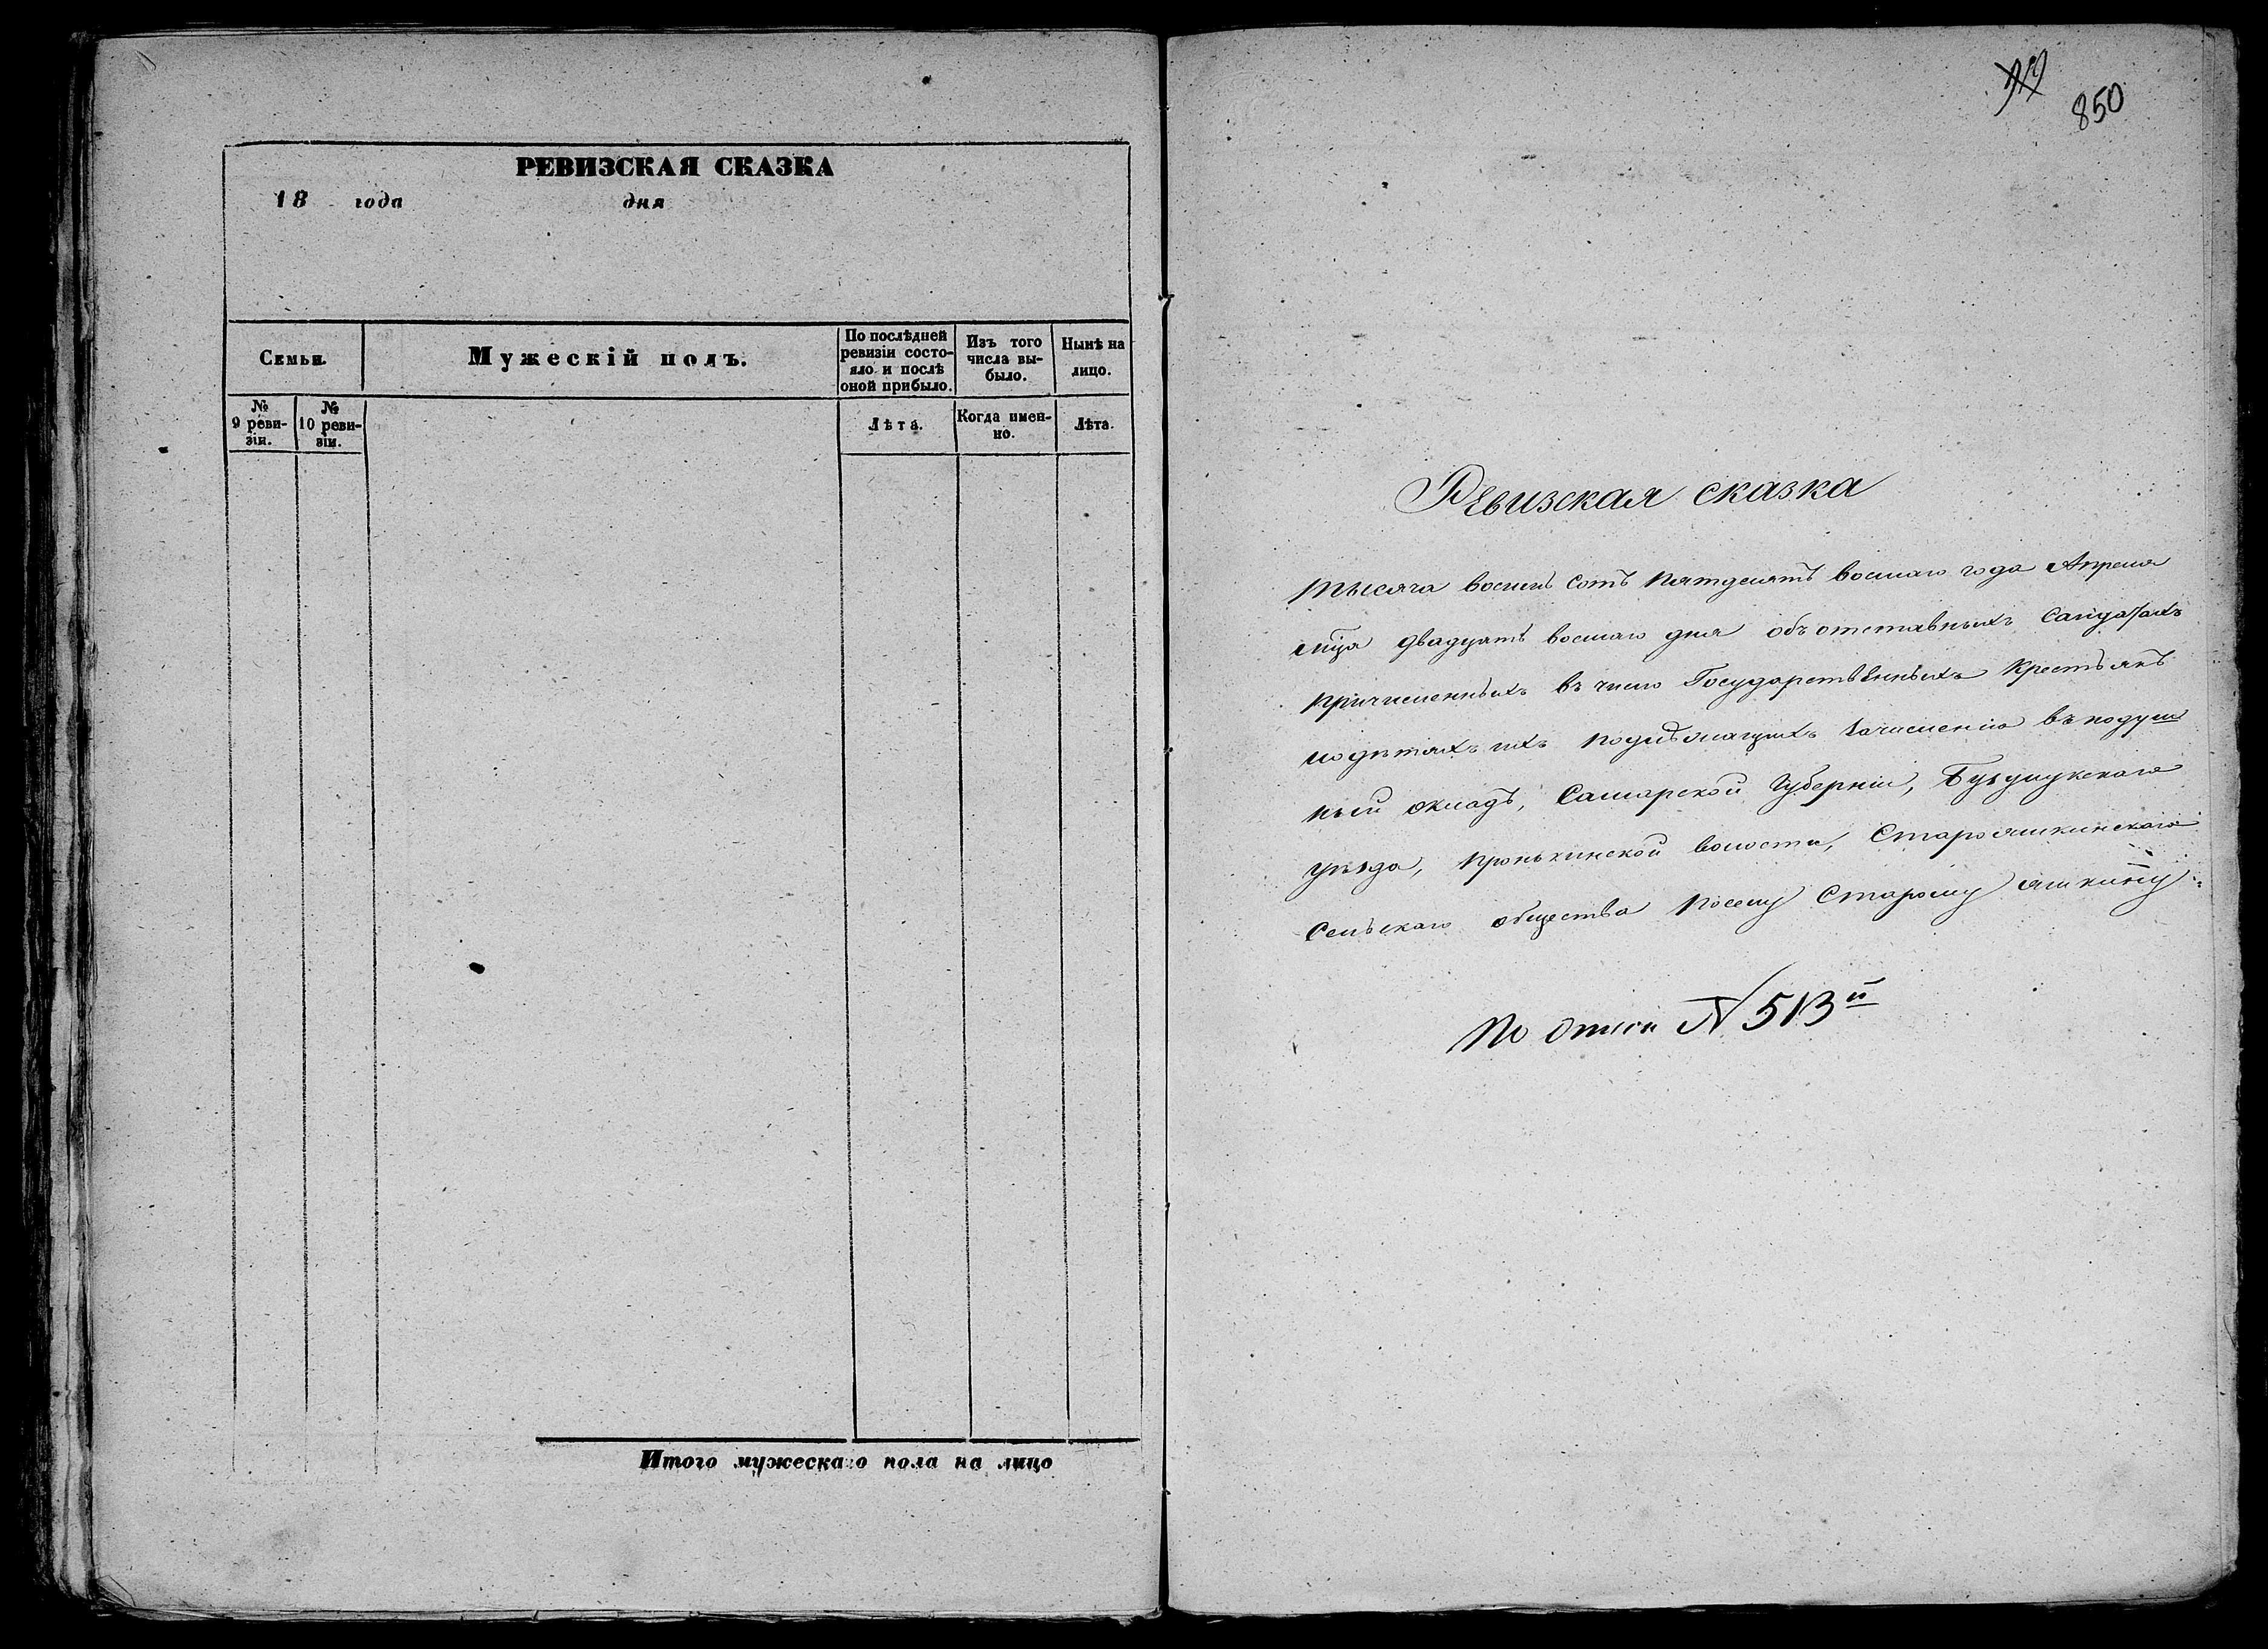 РЕВИЗСКАЯ СКАЗКА
18 года дня
Семьи.
Мужескій полъ.
По послѣдней ревизіи состояло и послѣ оной прибыло.
Изъ того числа выбыло.
Нынѣ на лицо.
№ 9 ревизіи.
№ 10 ревизіи.
Лѣта.
Когда именно.
Лѣта.
Итого мужескаго пола на лицо
850
Ревизская сказка
тысяча восемь сотъ пятдесятъ восмаго года Апреля
мца двадцать восмаго дня объ отставныхъ солдатахъ
причисленныхъ въ число Государственныхъ крестьянъ
и о детяхъ ихъ подлѣжащихъ зачисленію въ подуш
ный окладъ, Самарской Губерніи, Бузулукскаго
уѣзда, Пронькинской волости, Старояшкинскаго
Сельскаго общества по селу Старому яшкину
По описи № 513й